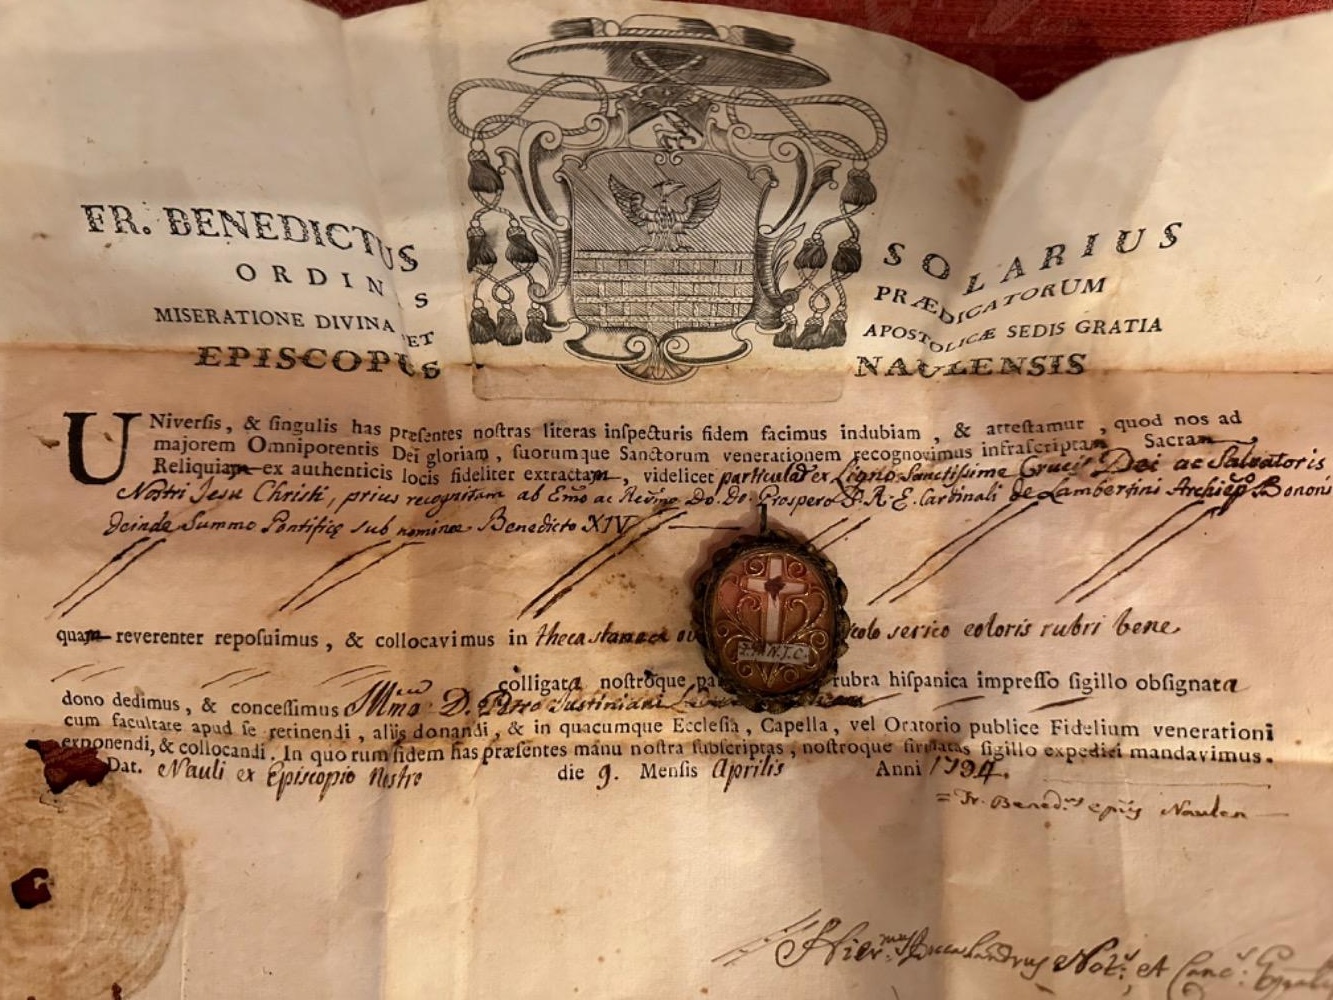 FR. BENEDICTUS SOLARIUS
ORDINIS PRÆDICATORUM
MISERATIONE DIVINA ET APOSTOLICÆ SEDIS GRATIA
EPISCOPUS NAULENSIS
UNiversis, & singulis has præsentes nostras literas inspecturis fidem facimus indubiam, & attestamur, quod nos ad
majorem Omnipotentis Dei gloriam, suorumque Sanctorum venerationem recognovimus infrascriptam Sacram
Reliquiam ex authenticis locis fideliter extractam, videlicet particulas ex Ligno Sanctissime Crucis Dei ac Salvatoris
Nostri Jesu Christi, prius recognitam ab Emo ac Rev̄mo Do. Do. Prospero S. R. E. Cardinali de Lambertini Archiepo Bononi
deinde Summo Pontifice sub nomine Benedicto XIV
quam reverenter reposuimus, & collocavimus in theca stannea serico coloris rubri bene
colligata nostroque rubra hispanica impresso sigillo obsignata
dono dedimus, & concessimus Illmo D. Petro Justiniani
cum facultate apud se retinendi, aliis donandi, & in quacumque Ecclesia, Capella, vel Oratorio publice Fidelium venerationi
exponendi, & collocandi. In quorum fidem has præsentes manu nostra subscriptas, nostroque firmatas sigillo expediri mandavimus.
Dat. Nauli ex Episcopio Nostro die 9. Mensis Aprilis Anni 1794.
= Fr. Bened.us epūs Naulen
Not.s et Canc.s